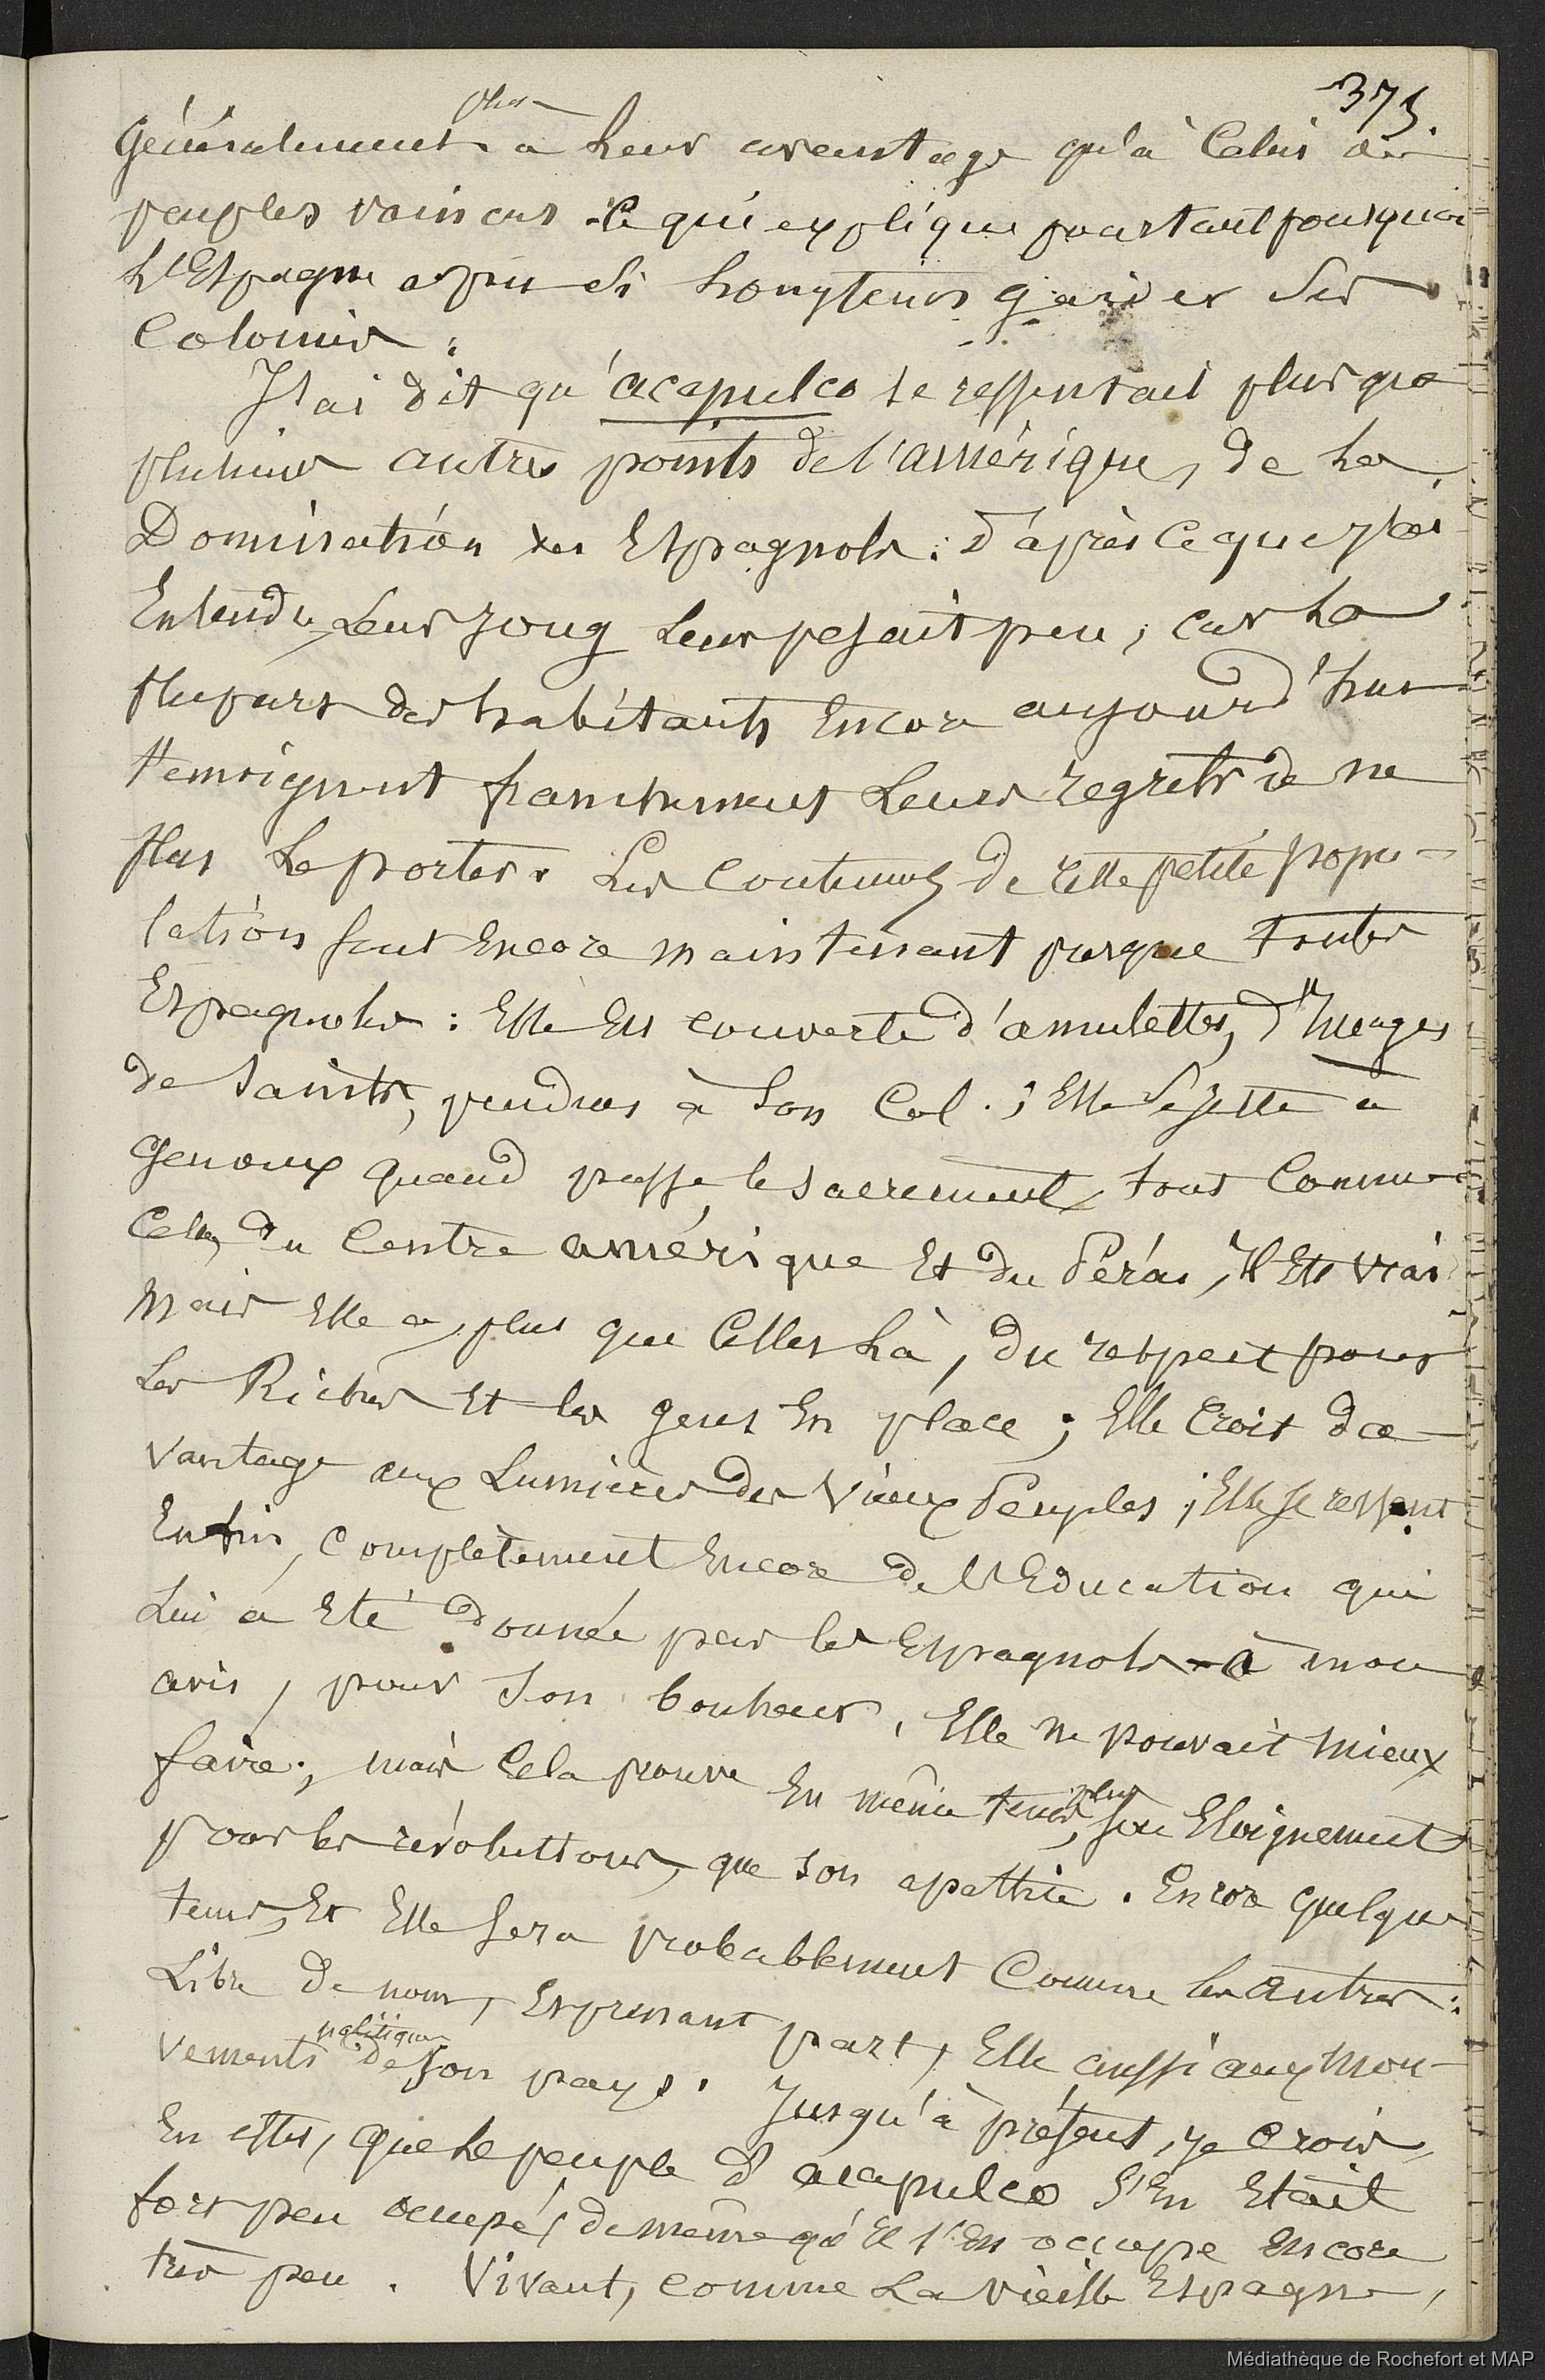 375.
plus
Généralement à Leur avantage qu'à Celui des
peuples vaincus. Ce qui explique pourtant pourquoi
L'Espagne a pu si Longtems garder Ses
Colonies.
J'ai dit qu'acapulco se ressentait plus que
plusieurs autres points de l'amérique, de La
Domination des Espagnols : D'après ce que j'ai
Entendu, Leur joug Leur pesait peu, car La
plupart des habitants Encore aujourd'hui
témoignent franchement Leurs regrets de ne
plus Le porter. Les Coutumes de cette petite popu-
lation sont Encore maintenant presque toutes
Espagnoles : Elle Est couverte d'amulettes, d'Images
de Saints, pendues à Son Col. ; Elle Se jette à
Genoux quand passe le Sacrement, tout Comme
Celles du Centre amérique Et du Pérou, Il Est vrai
Mais Elle a, plus que Celles Là, du respect pour
Les Riches Et les gens En place ; Elle Croit da-
vantage aux Lumières des Vieux Peuples ; Elle se ressent
Enfin, Complètement Encore de l'Education qui
Lui a Eté donnée par les Espagnols - à mon
avis, pour Son bonheur, Elle ne pouvait mieux
faire ; mais Cela prouve En même tems, plus son Eloignement
pour les révolutions, que son apathie. Encore quelque
tems, Et Elle Sera probablement Comme les autres :
Libre de nom, Et prenant part, Elle aussi aux mou-
politiques
vements de Son pays. Jusqu'à présent, je Crois,
En effet, que Le peuple d'acapulco S'En Etait
fort peu occupé, de même qu'Il s'En occupe Encore
très peu. Vivant, Comme La vieille Espagne,
Médiathèque de Rochefort et MAP